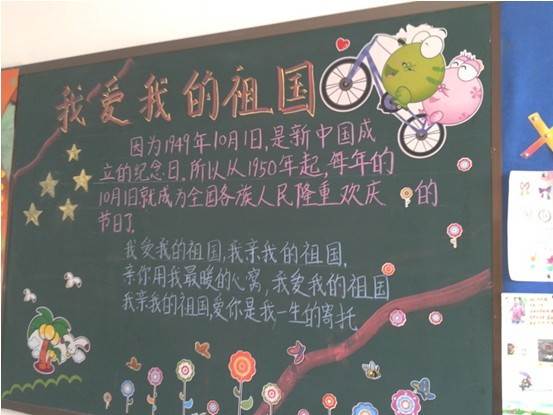 我爱我的祖国
因为1949年10月1日,是新中国成
立的纪念日,所以从1950年起,每年的
10月1日就成为全国各族人民隆重欢庆的
节日了.
我爱我的祖国,我亲我的祖国,
亲你用我最暖的心窝,我爱我的祖国
我亲我的祖国,爱你是我一生的寄托